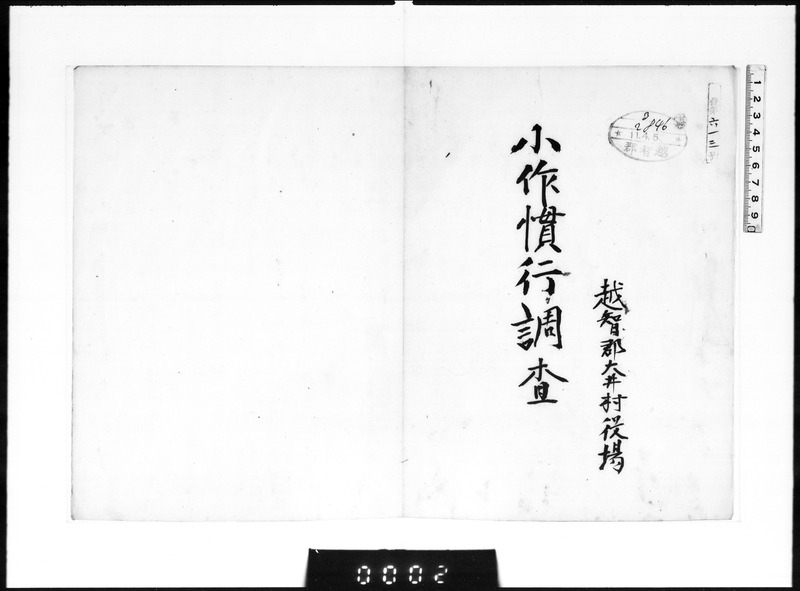 小作慣行調査
越智郡大井村役場
六一三
2846
11.4.5
越智郡
1 2 3 4 5 6 7 8 9
0002